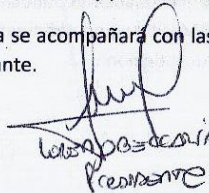 a se acompañará con las
ante.
PRESIDENTE